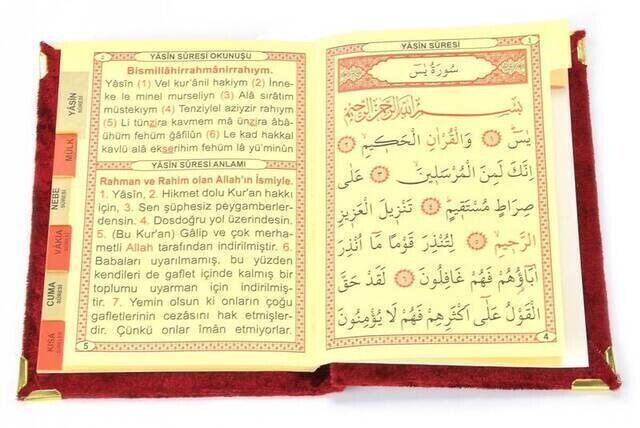 YÂSİN SÛRESİ OKUNUŞU
Bismillâhirrahmânirrahıym.
Yâsîn (1) Vel kur'ânil hakiym (2) İnne-
ke le minel murseliyn (3) Alâ sırâtim
müstekıym (4) Tenziylel aziyzir rahıym
(5) Li tünzira kavmem mâ ünzira âbâ-
ühüm fehüm ğâfilûn (6) Le kad hakkal
kavlü alâ ekserihim fehüm lâ yü'minûn
YÂSÎN SÛRESİ ANLAMI
Rahman ve Rahim olan Allah'ın İsmiyle.
1. Yâsîn, 2. Hikmet dolu Kur'an hakkı
için, 3. Sen şüphesiz peygamberler-
densin. 4. Dosdoğru yol üzerindesin.
5. (Bu Kur'an) Gâlip ve çok merha-
metli Allah tarafından indirilmiştir. 6.
Babaları uyarılmamış, bu yüzden
kendileri de gaflet içinde kalmış bir
toplumu uyarman için indirilmiş-
tir. 7. Yemin olsun ki onların çoğu
gafletlerinin cezasını hak etmişler-
dir. Çünkü onlar îmân etmiyorlar.
5
YÂSİN
SÛRESİ
MÜLK
NEBE
SÛRESİ
VAKIA
CUMA
SÛRESİ
KISA
YÂSİN SÛRESİ
سُورَةُ يٰسٓ
بِسْمِ اللّٰهِ الرَّحْمٰنِ الرَّحِيمِ
يٰسٓ ١ وَالْقُرْاٰنِ الْحَكِيمِ ٢
اِنَّكَ لَمِنَ الْمُرْسَلِينَ ٣ عَلٰى
صِرَاطٍ مُسْتَقِيمٍ ٤ تَنْزِيلَ الْعَزِيزِ
الرَّحِيمِ ٥ لِتُنْذِرَ قَوْمًا مَٓا اُنْذِرَ
اٰبَٓاؤُ۬هُمْ فَهُمْ غَافِلُونَ ٦ لَقَدْ حَقَّ
الْقَوْلُ عَلٰٓى اَكْثَرِهِمْ فَهُمْ لَا يُؤْمِنُونَ
4